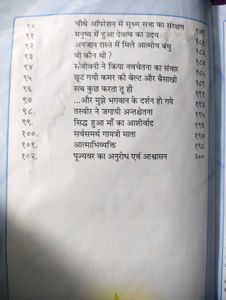 ९० चौथे ऑपरेशन में सूक्ष्म सत्ता का संरक्षण
९१ मनुष्य में हुआ देवत्व का उदय
९२ अनजान रास्ते में मिले आत्मीय बंधु
९३ वो कौन थी ?
९४ संजीवनी ने किया नवचेतना का संचार
९५ छूट गयी कमर की बेल्ट और बैसाखी
९६ सब कुछ करता तू ही
९७ ...और मुझे भगवान के दर्शन हो गये
९८. तस्वीर ने जगायी अन्तश्चेतना
९९. सिद्ध हुआ माँ का आशीर्वाद
१००. सर्वसमर्थ गायत्री माता १९७
१०१. आत्माभिव्यक्ति १९८
१०२. पूज्यवर का अनुरोध एवं आश्वासन २००